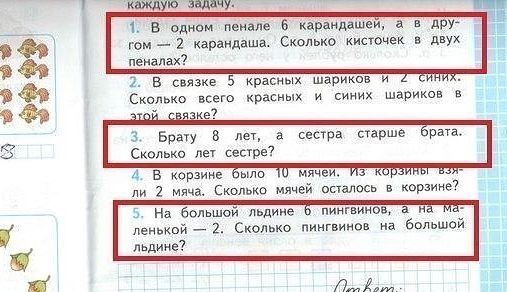 каждую задачу.
1. В одном пенале 6 карандашей, а в дру-
гом — 2 карандаша. Сколько кисточек в двух
пеналах?
2. В связке 5 красных шариков и 2 синих.
Сколько всего красных и синих шариков в
этой связке?
3. Брату 8 лет, а сестра старше брата.
Сколько лет сестре?
4. В корзине было 10 мячей. Из корзины взя-
ли 2 мяча. Сколько мячей осталось в корзине?
5. На большой льдине 6 пингвинов, а на ма-
ленькой — 2. Сколько пингвинов на большой
льдине?
Ответ: